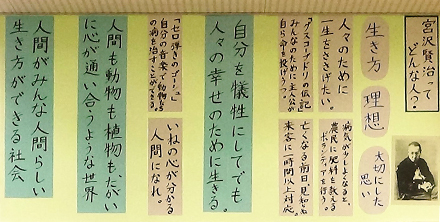 宮沢賢治って
どんな人？
生き方
理想
大切にした
思い
人々のために
一生をささげたい。
「グスコーブドリの伝記」
みなのために主人公が
自ら命を投げうつ。
病気が少しよくなると、
農民に肥料を教える
ボランティアを行う。
亡くなる前日、見知らぬ
来客に一時間以上対応。
自分を犠牲にしてでも
人々の幸せのために生きる。
「セロ弾きのゴーシュ」
自分の音楽で動物たち
の病を治すことができる。
いねの心が分かる
人間になれ。
人間も動物も植物も、たがい
に心が通い合うような世界
人間がみんな人間らしい
生き方ができる社会